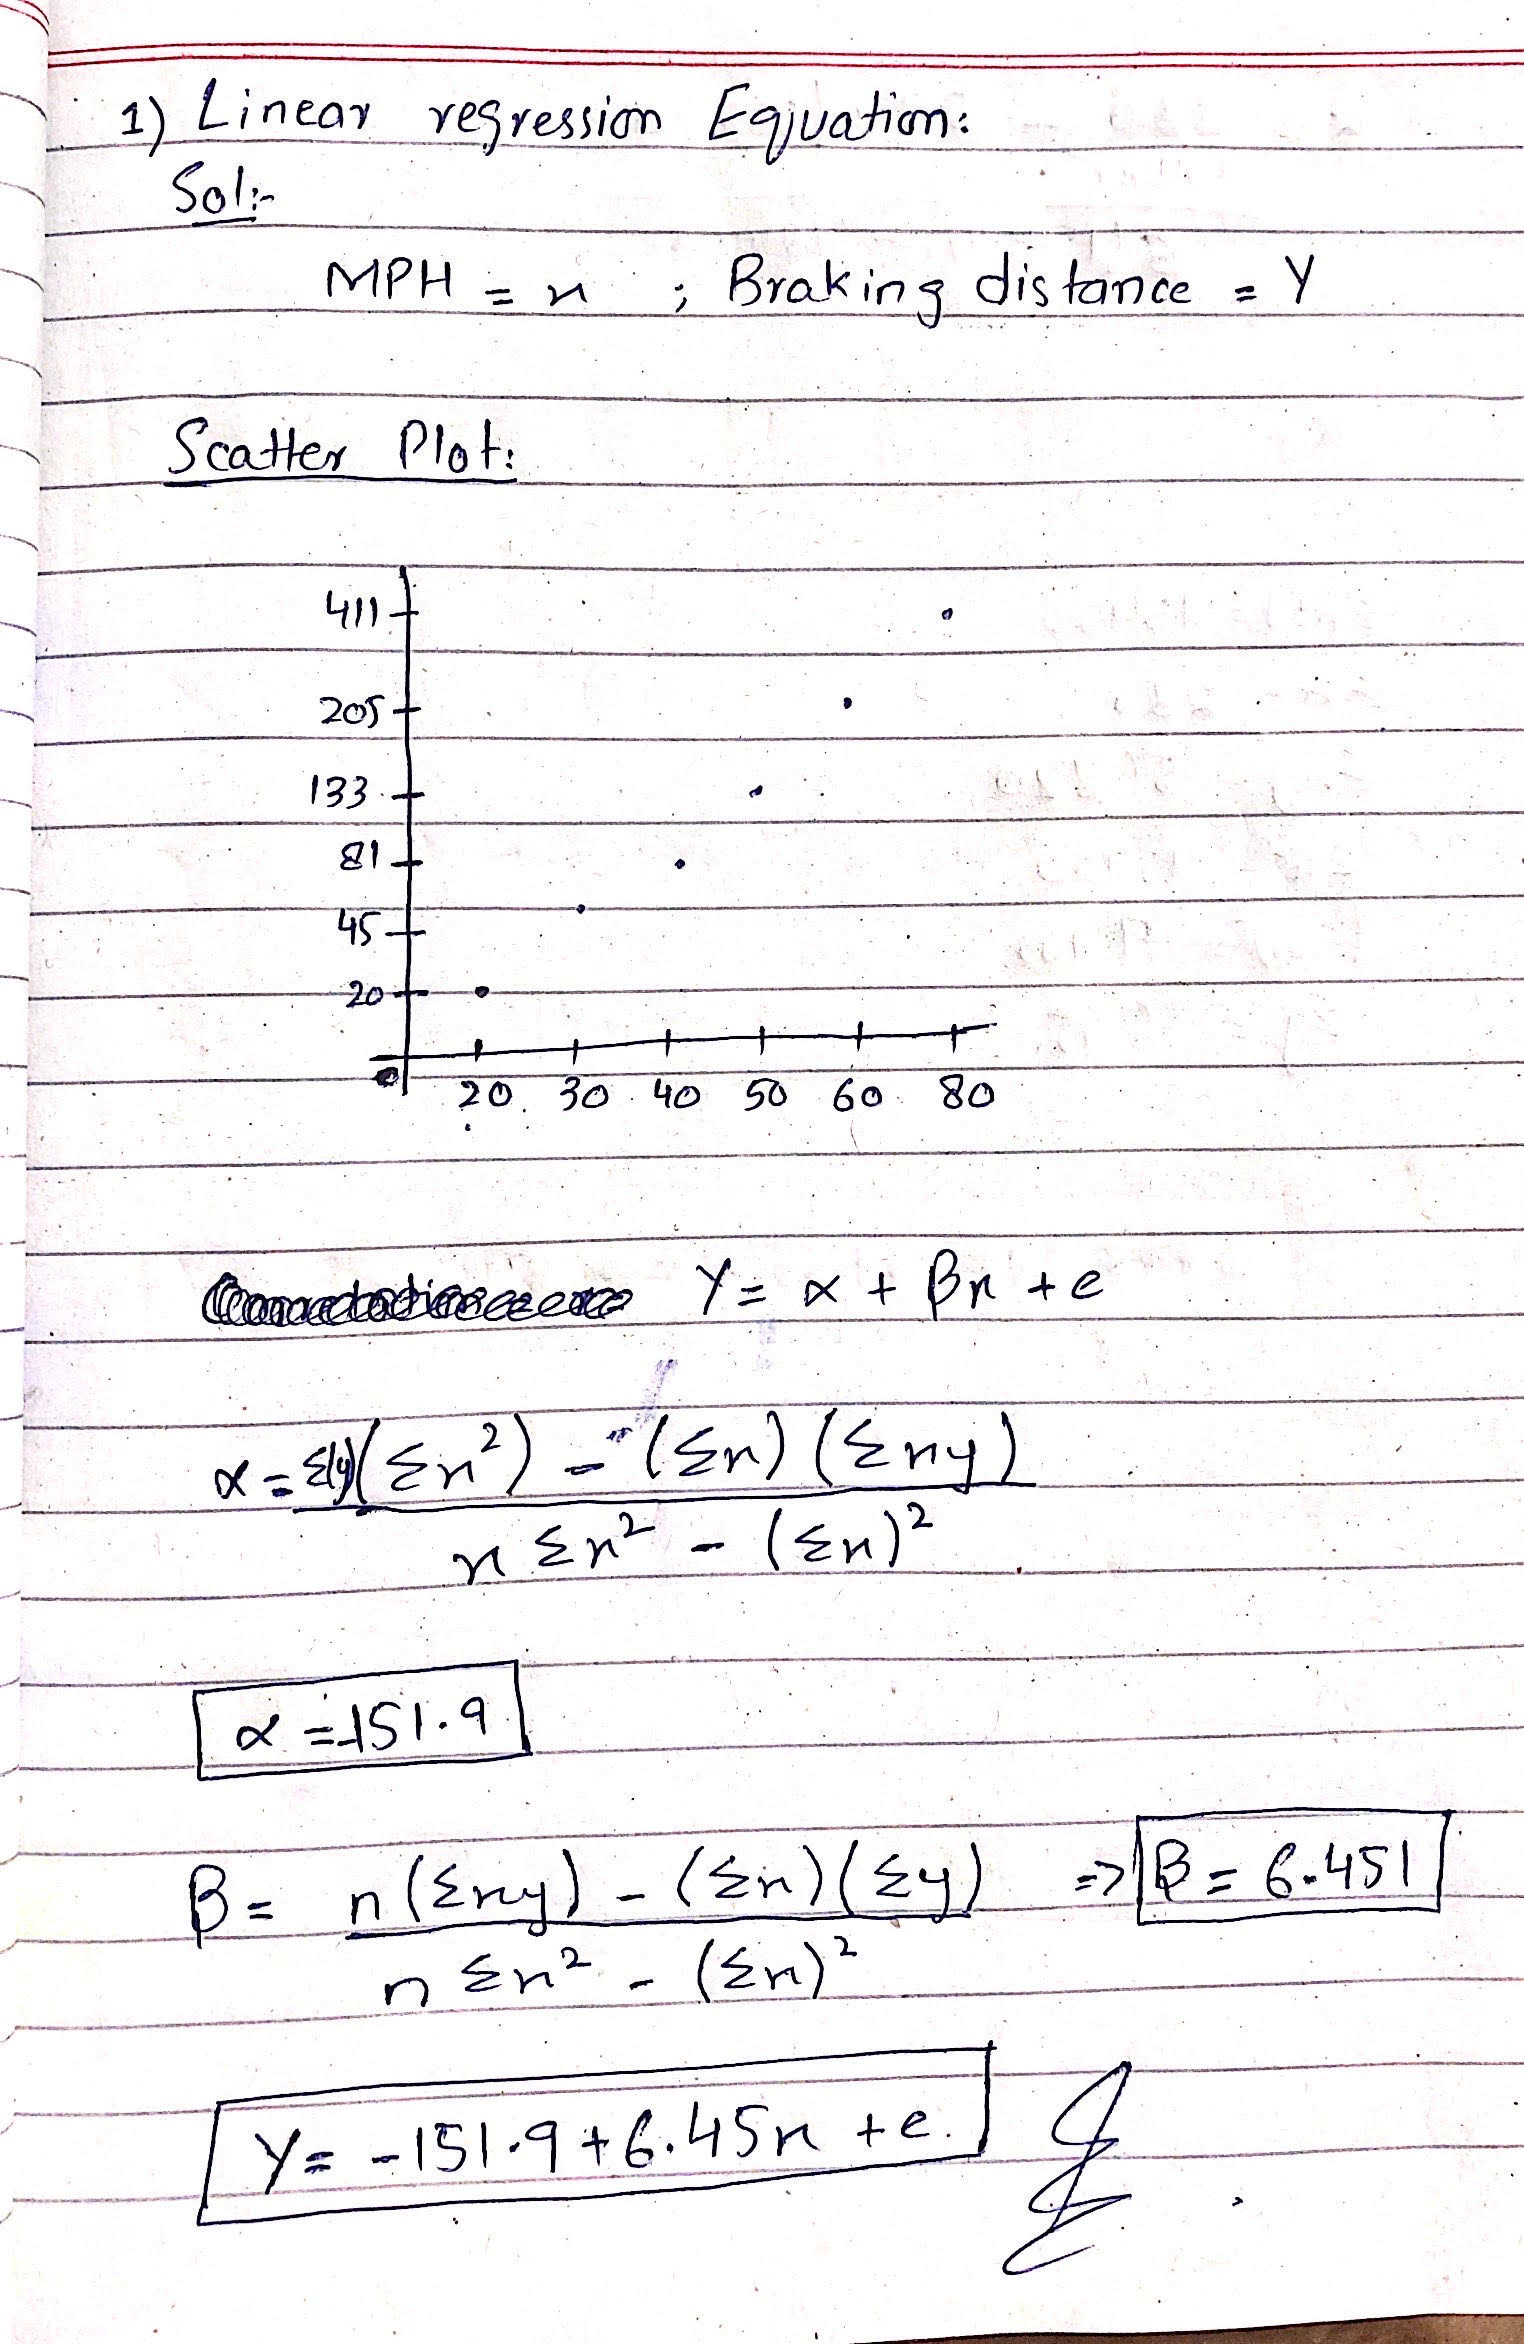 1) Linear regression Equation:
Sol:-
MPH = x ; Braking distance = Y
Scatter Plot:
411
205
133
81
45
20
0
20 30 40 50 60 80
Y = α + βx + e
α = Σ(y)(Σx²) - (Σx)(Σxy)
n Σx² - (Σx)²
α = -151.9
β = n(Σxy) - (Σx)(Σy) => β = 6.451
n Σx² - (Σx)²
Y = -151.9 + 6.45x + e.